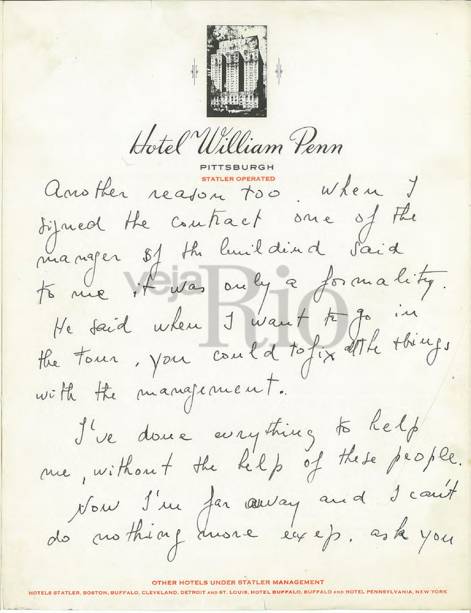 Hotel William Penn
PITTSBURGH
STATLER OPERATED
Another reason too. When I
signed the contract one of the
manager of th buildind said
to me it was only a formality.
He said when I want to go in
the tour, you could to fix all the things
with the management..
I've done evrything to help
me, without the help of these people.
Now I'm far away and I can't
do nothing more exep. ask you
veja Rio
OTHER HOTELS UNDER STATLER MANAGEMENT
HOTELS STATLER, BOSTON, BUFFALO, CLEVELAND, DETROIT AND ST. LOUIS, HOTEL BUFFALO, BUFFALO AND HOTEL PENNSYLVANIA, NEW YORK